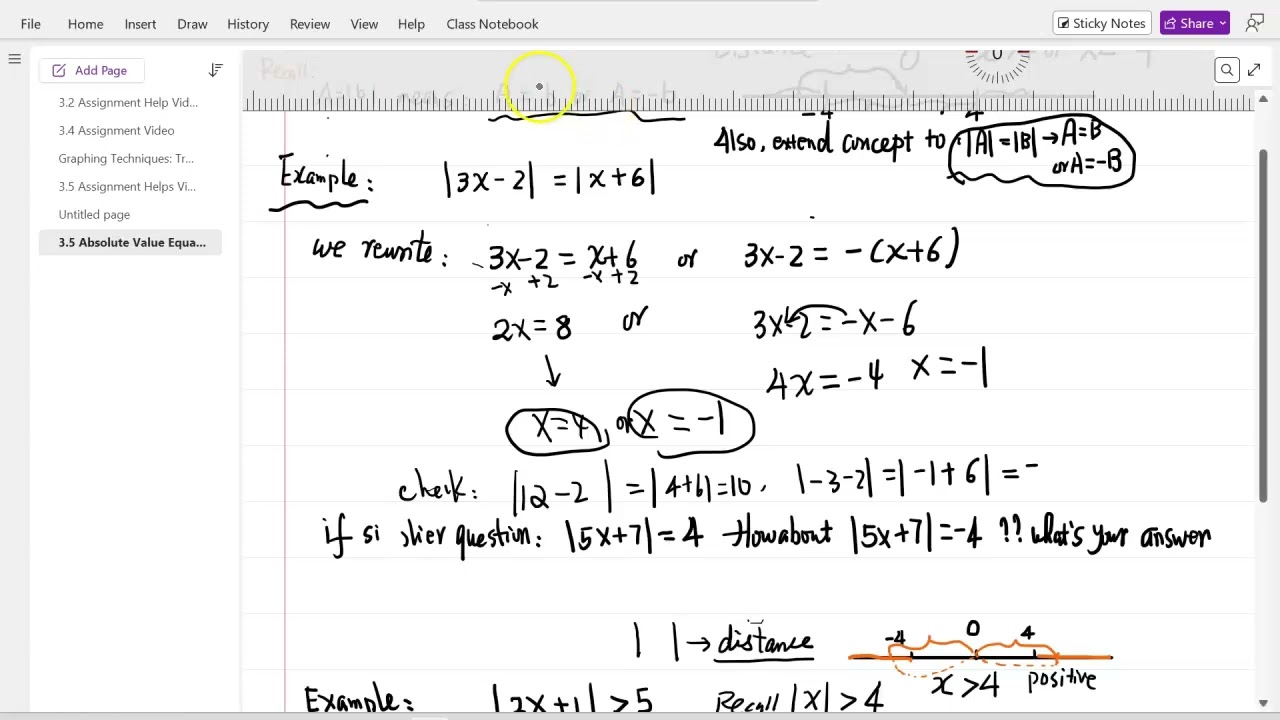 File Home Insert Draw History Review View Help Class Notebook Sticky Notes Share
Add Page
3.2 Assignment Help Vid...
3.4 Assignment Video
Graphing Techniques: Tr...
3.5 Assignment Helps Vi...
Untitled page
3.5 Absolute Value Equa...
Recall:
Distance 0
-4 4
Also, extend concept to : |A| = |B| → A=B
or A=-B
Example: |3x-2| = |x+6|
we rewrite: 3x-2 = x+6 or 3x-2 = -(x+6)
-x +2 -x +2
2x=8 or 3x-2=-x-6
4x=-4 x=-1
x=4, or x=-1
check: |12-2| = |4+6|=10, |-3-2|=|-1+6|=-
if si question: |5x+7|=4 How about |5x+7|=-4 ?? what's your answer
| | → distance -4 0 4
x>4 positive
Example: |2x+1|>5 Recall |x|>4